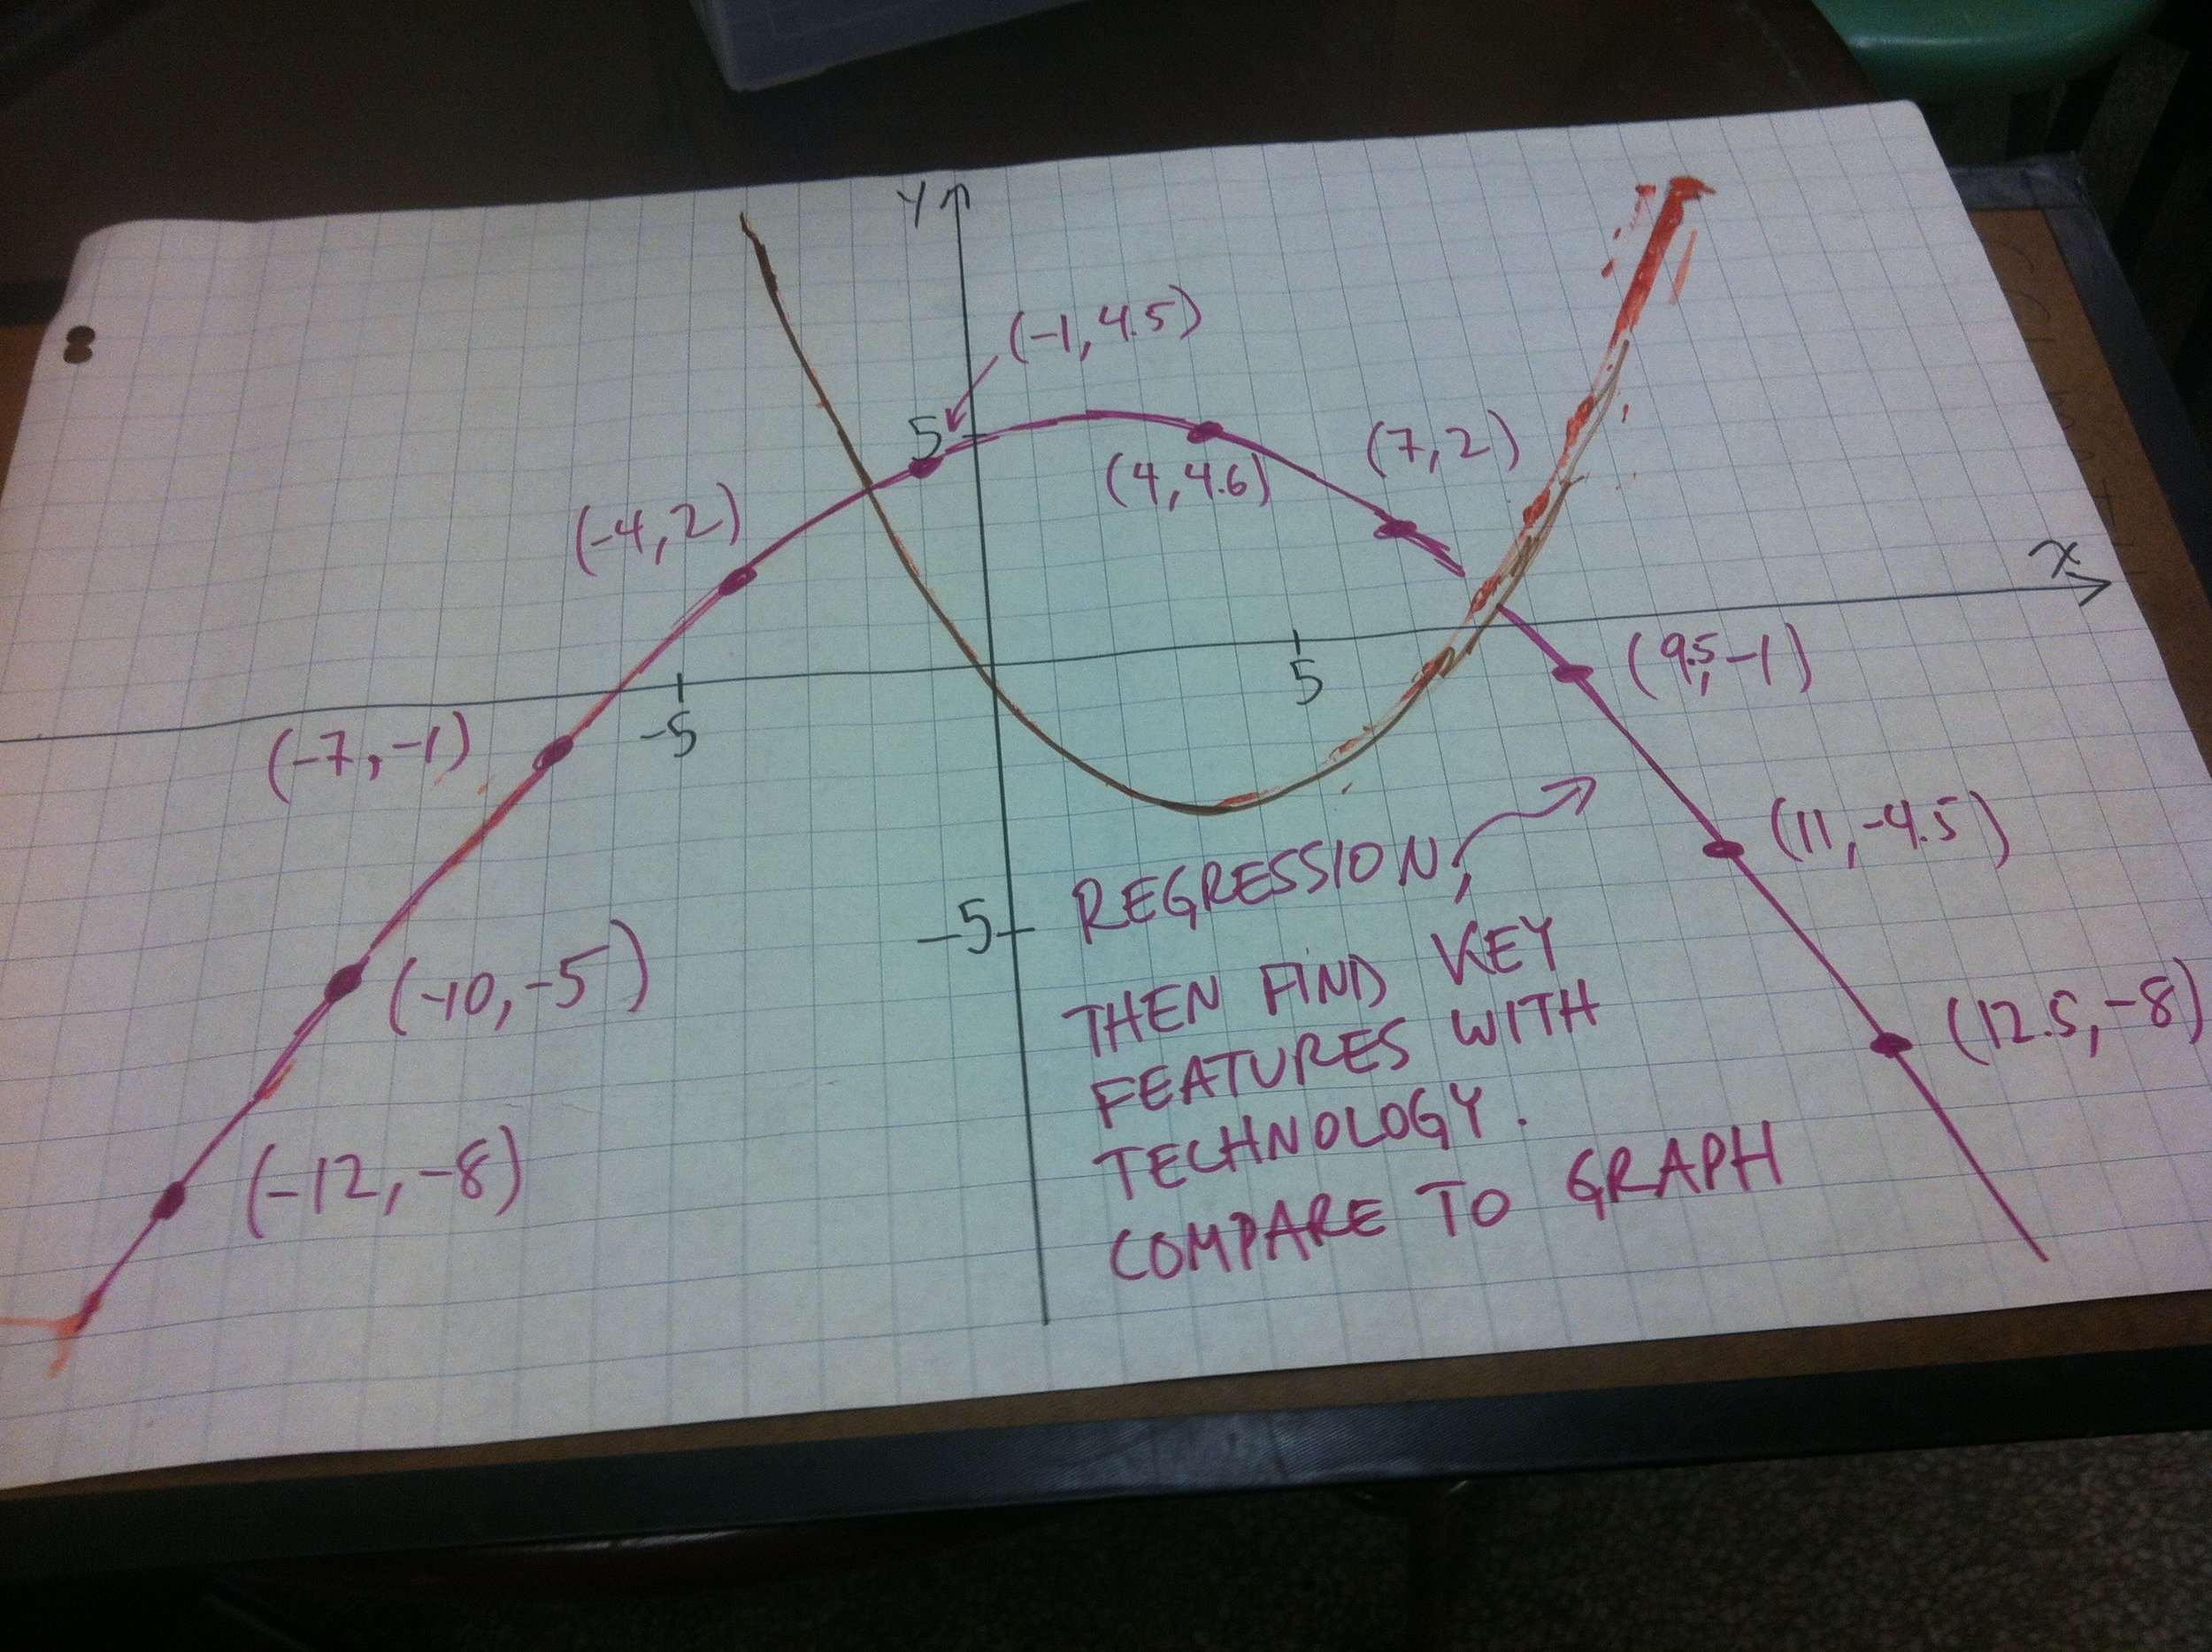 Y
(-1, 4.5)
5
(7, 2)
(4, 4.6)
(-4, 2)
x
5
(9.5, -1)
-5
(-7, -1)
(11, -4.5)
REGRESSION,
-5
THEN FIND KEY
(-10, -5)
FEATURES WITH
(12.5, -8)
TECHNOLOGY.
(-12, -8)
COMPARE TO GRAPH